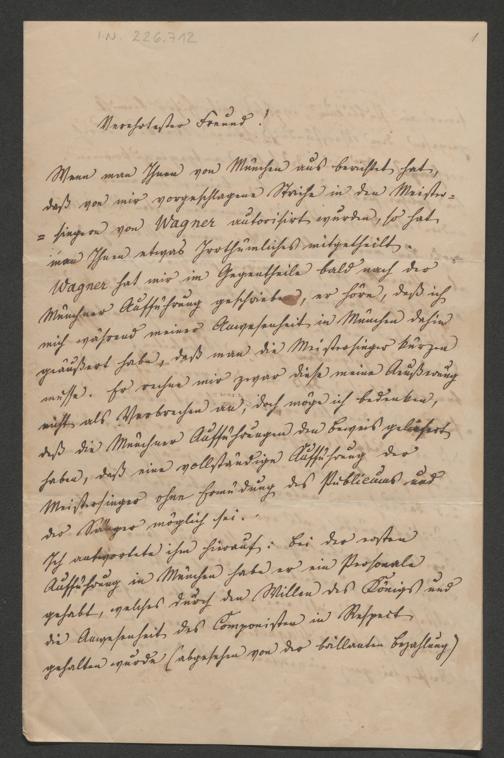 I.N. 226.712
1
Verehrtester Freund!
Wenn man Ihnen von München aus berichtet hat,
daß von mir vorgeschlagene Striche in den Meister=
=singern von Wagner autorisirt wurden, so hat
man Ihnen etwas Irrthümliches mitgetheilt.
Wagner hat mir im Gegentheile bald nach der
Münchner Aufführung geschrieben, er höre, daß ich
mich während meiner Anwesenheit in München dahin
geäußert habe, daß man die Meistersinger kürzen
müsse. Er rechne mir zwar diese meine Aeußerung
nicht als Verbrechen an, doch möge ich bedenken,
daß die Münchner Aufführungen den Beweis geliefert
haben, daß eine vollständige Aufführung der
Meistersinger ohne Ermüdung des Publicums und
der Sänger möglich sei.
Ich antwortete ihm hierauf: bei der ersten
Aufführung in München habe er ein Personale
gehabt, welches durch den Willen des Königs und
die Anwesenheit des Componisten in Respect
gehalten wurde (abgesehen von der brillanten Bezahlung)